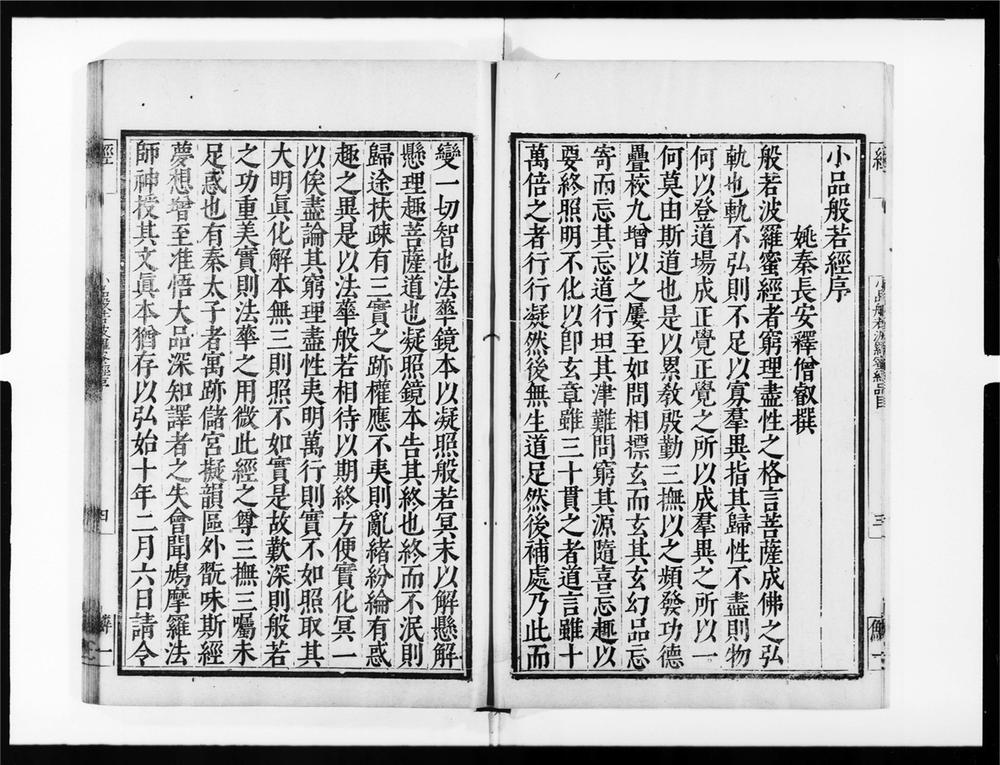 小品般若經序
姚秦長安釋僧叡撰
般若波羅蜜經者窮理盡性之格言菩薩成佛之弘
軌也軌不弘則不足以寡羣異指其歸性不盡則物
何以登道場成正覺正覺之所以成羣異之所以一
何莫由斯道也是以累敎殷勤三撫以之頻發功德
疊校九增以之屢至如問相標玄而玄其玄幻品忘
寄而忘其忘道行坦其津難問窮其源隨喜忘趣以
要終照明不化以卽玄章雖三十貫之者道言雖十
萬倍之者行行凝然後無生道足然後補處乃此而
變一切智也法華鏡本以凝照般若冥末以解懸解
懸理趣菩薩道也凝照鏡本告其終也終而不泯則
歸途扶疎有三實之跡權應不夷則亂緒紛綸有惑
趣之異是以法華般若相待以期終方便實化冥一
以俟盡論其窮理盡性夷明萬行則實不如照取其
大明眞化解本無三則照不如實是故歎深則般若
之功重美實則法華之用微此經之尊三撫三囑未
足惑也有秦太子者寓跡儲宮擬韻區外翫味斯經
夢想增至准悟大品深知譯者之失會聞鳩摩羅法
師神授其文眞本猶存以弘始十年二月六日請令
小品般若波羅蜜經品目
三
四